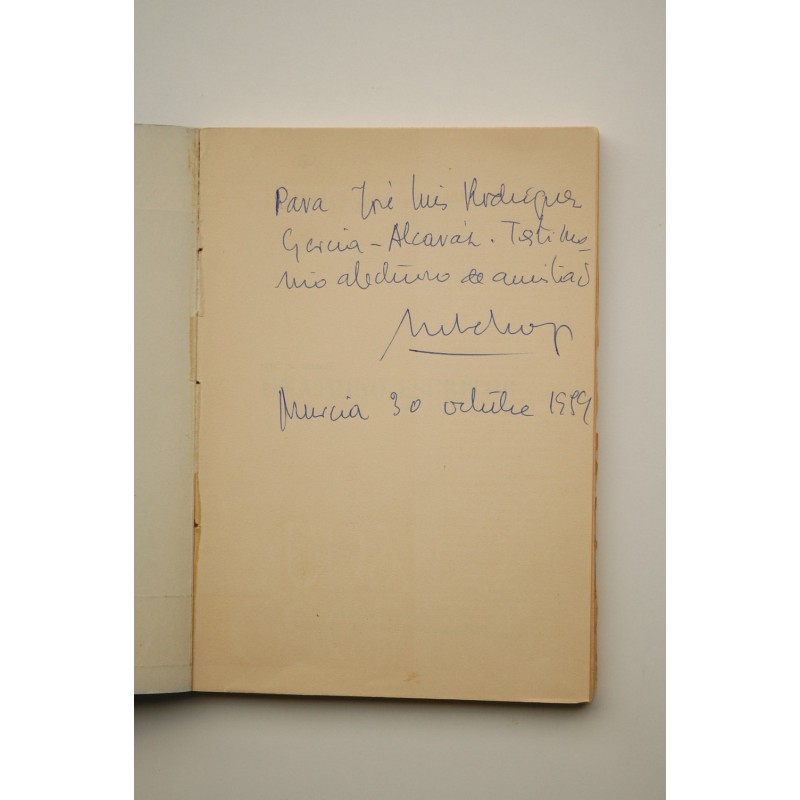 Para José Luis Rodríguez
García-Alcaráz. Testimo-
nio afectuoso de amistad
Murcia 30 octubre 1959